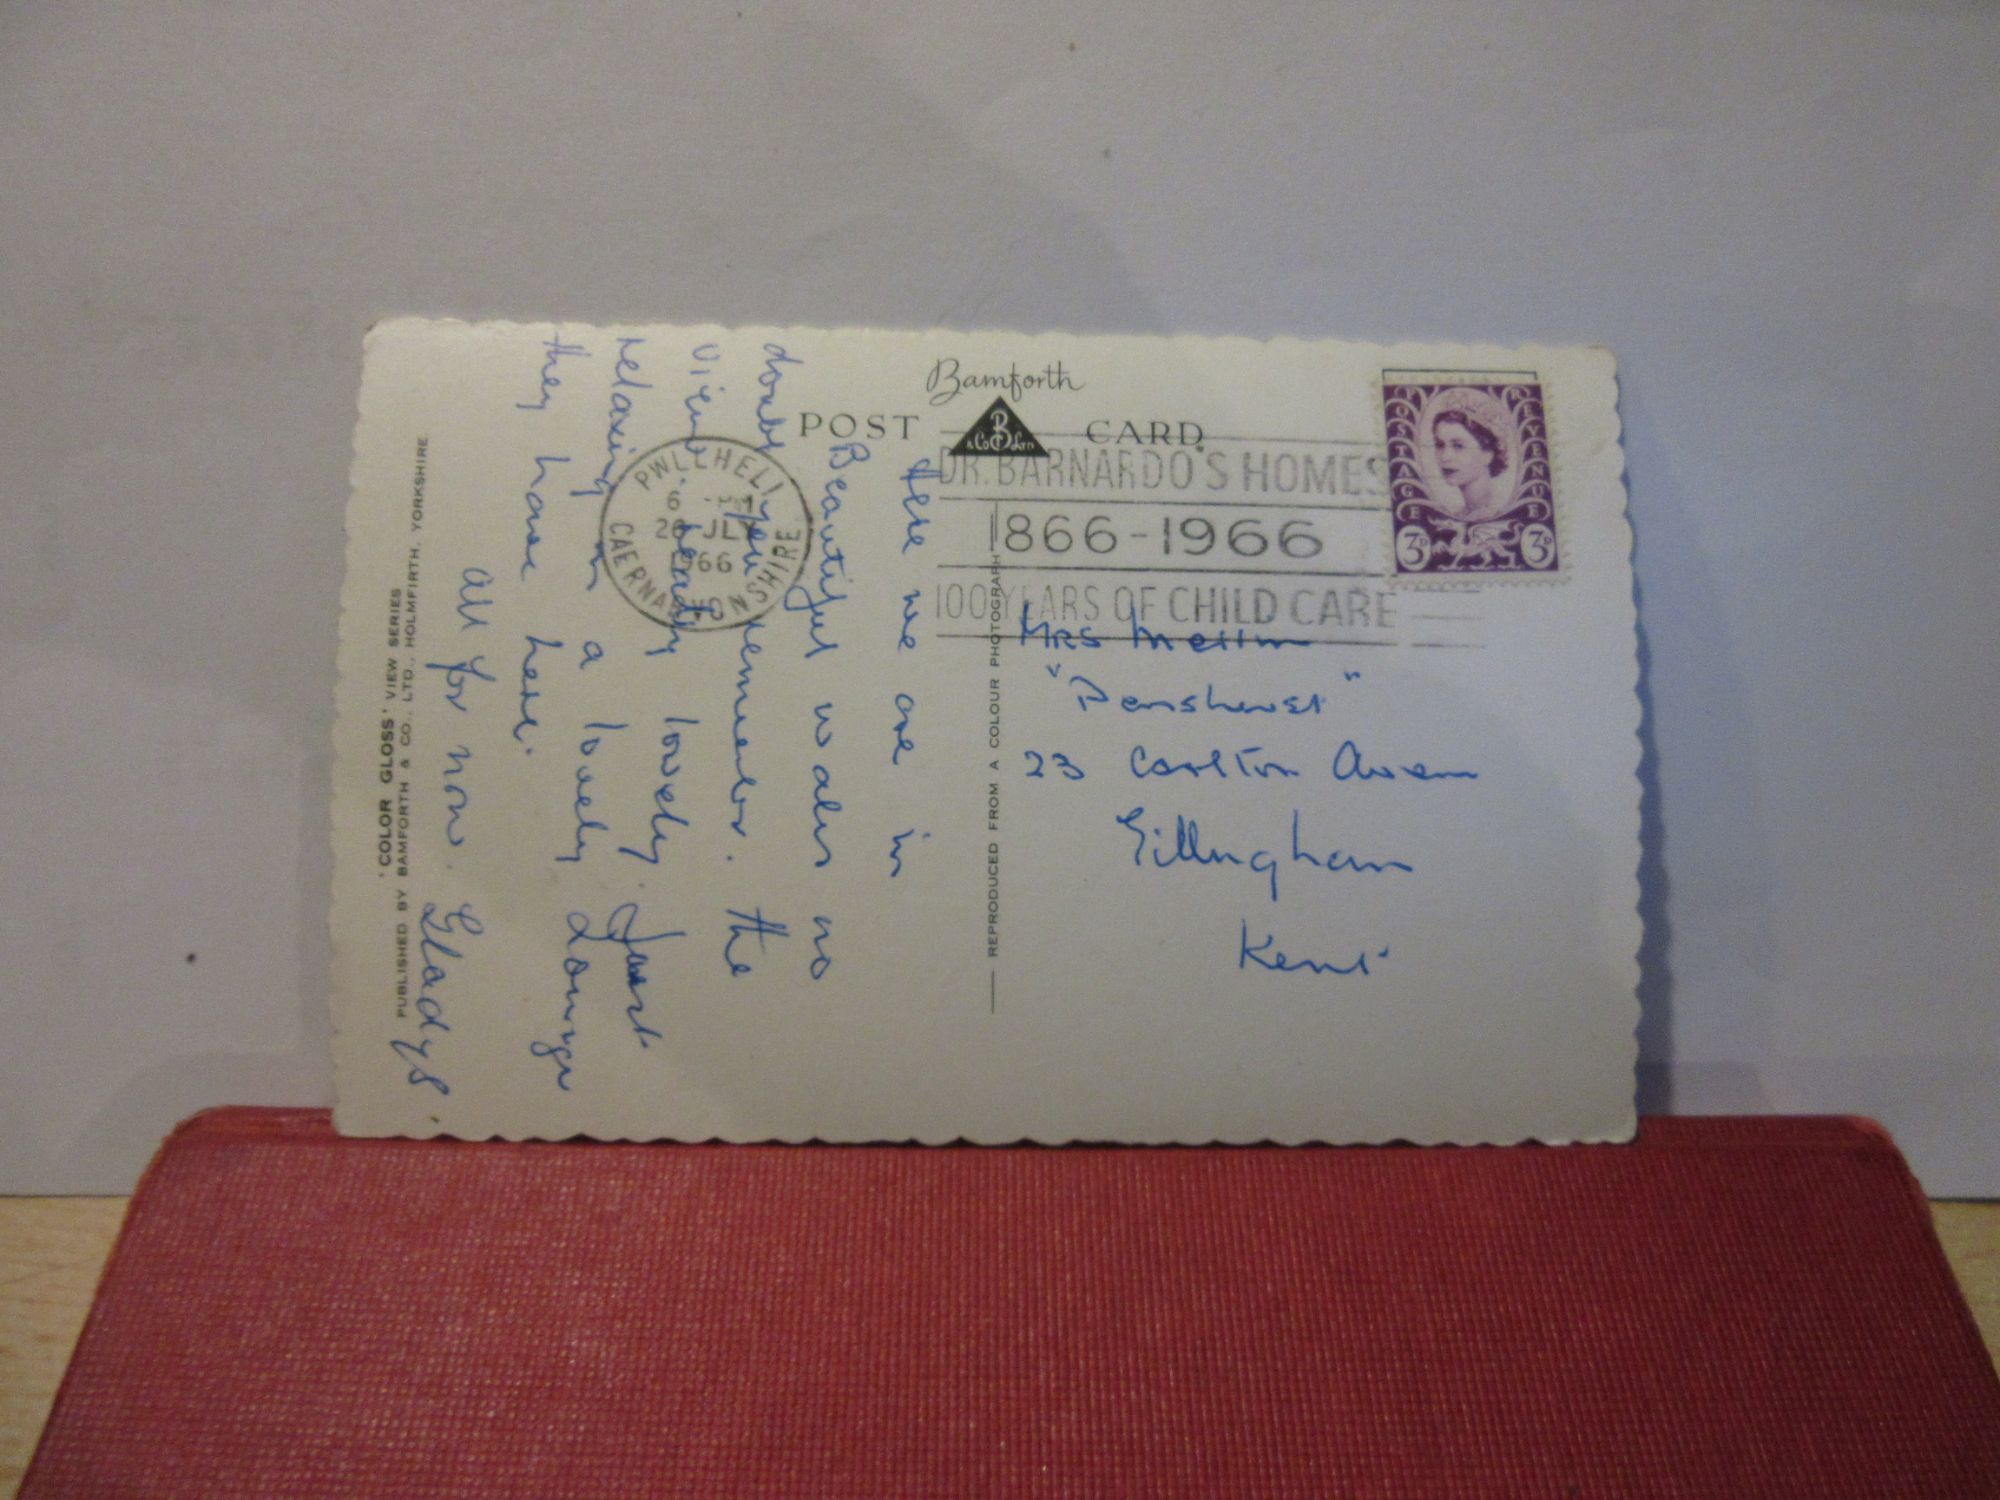 Bamforth
POST CARD
B
& Co Ltd
POSTAGE REVENUE
3D 3D
DR. BARNARDO'S HOMES
1866-1966
100 YEARS OF CHILD CARE
PWLLHELI
6
26 JLY
1966
CAERNARVONSHIRE
Here we are in
Beautiful wales no
doubt you remember. the
view. really lovely. Just
relaxing in a lovely Lounge
they have here.
all for now. Gladys.
MRS
"Penshurst"
23 Carlton Avenue
Gillingham
Kent.
REPRODUCED FROM A COLOUR PHOTOGRAPH
'COLOR GLOSS' VIEW SERIES
PUBLISHED BY BAMFORTH & CO., LTD., HOLMFIRTH, YORKSHIRE